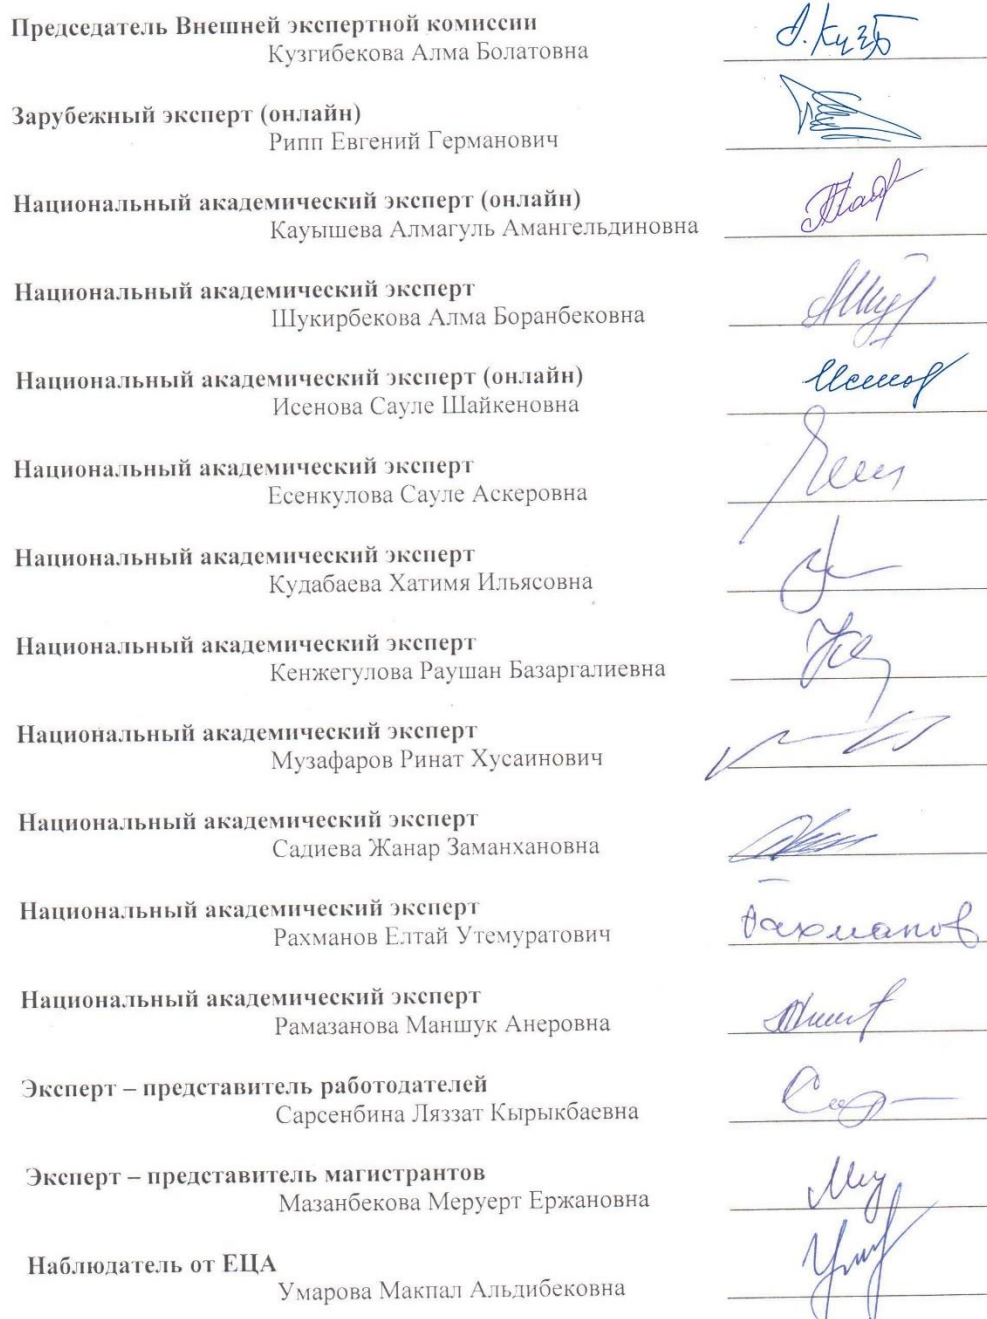 Председатель Внешней экспертной комиссии
Кузгибекова Алма Болатовна
Зарубежный эксперт (онлайн)
Рипп Евгений Германович
Национальный академический эксперт (онлайн)
Кауышева Алмагуль Амангельдиновна
Национальный академический эксперт
Шукирбекова Алма Боранбековна
Национальный академический эксперт (онлайн)
Исенова Сауле Шайкеновна
Национальный академический эксперт
Есенкулова Сауле Аскеровна
Национальный академический эксперт
Кудабаева Хатимя Ильясовна
Национальный академический эксперт
Кенжегулова Раушан Базаргалиевна
Национальный академический эксперт
Музафаров Ринат Хусаинович
Национальный академический эксперт
Садиева Жанар Заманхановна
Национальный академический эксперт
Рахманов Елтай Утемуратович
Рахманов
Национальный академический эксперт
Рамазанова Маншук Анеровна
Эксперт – представитель работодателей
Сарсенбина Ляззат Кырыкбаевна
Эксперт – представитель магистрантов
Мазанбекова Меруерт Ержановна
Наблюдатель от ЕЦА
Умарова Макпал Альдибековна